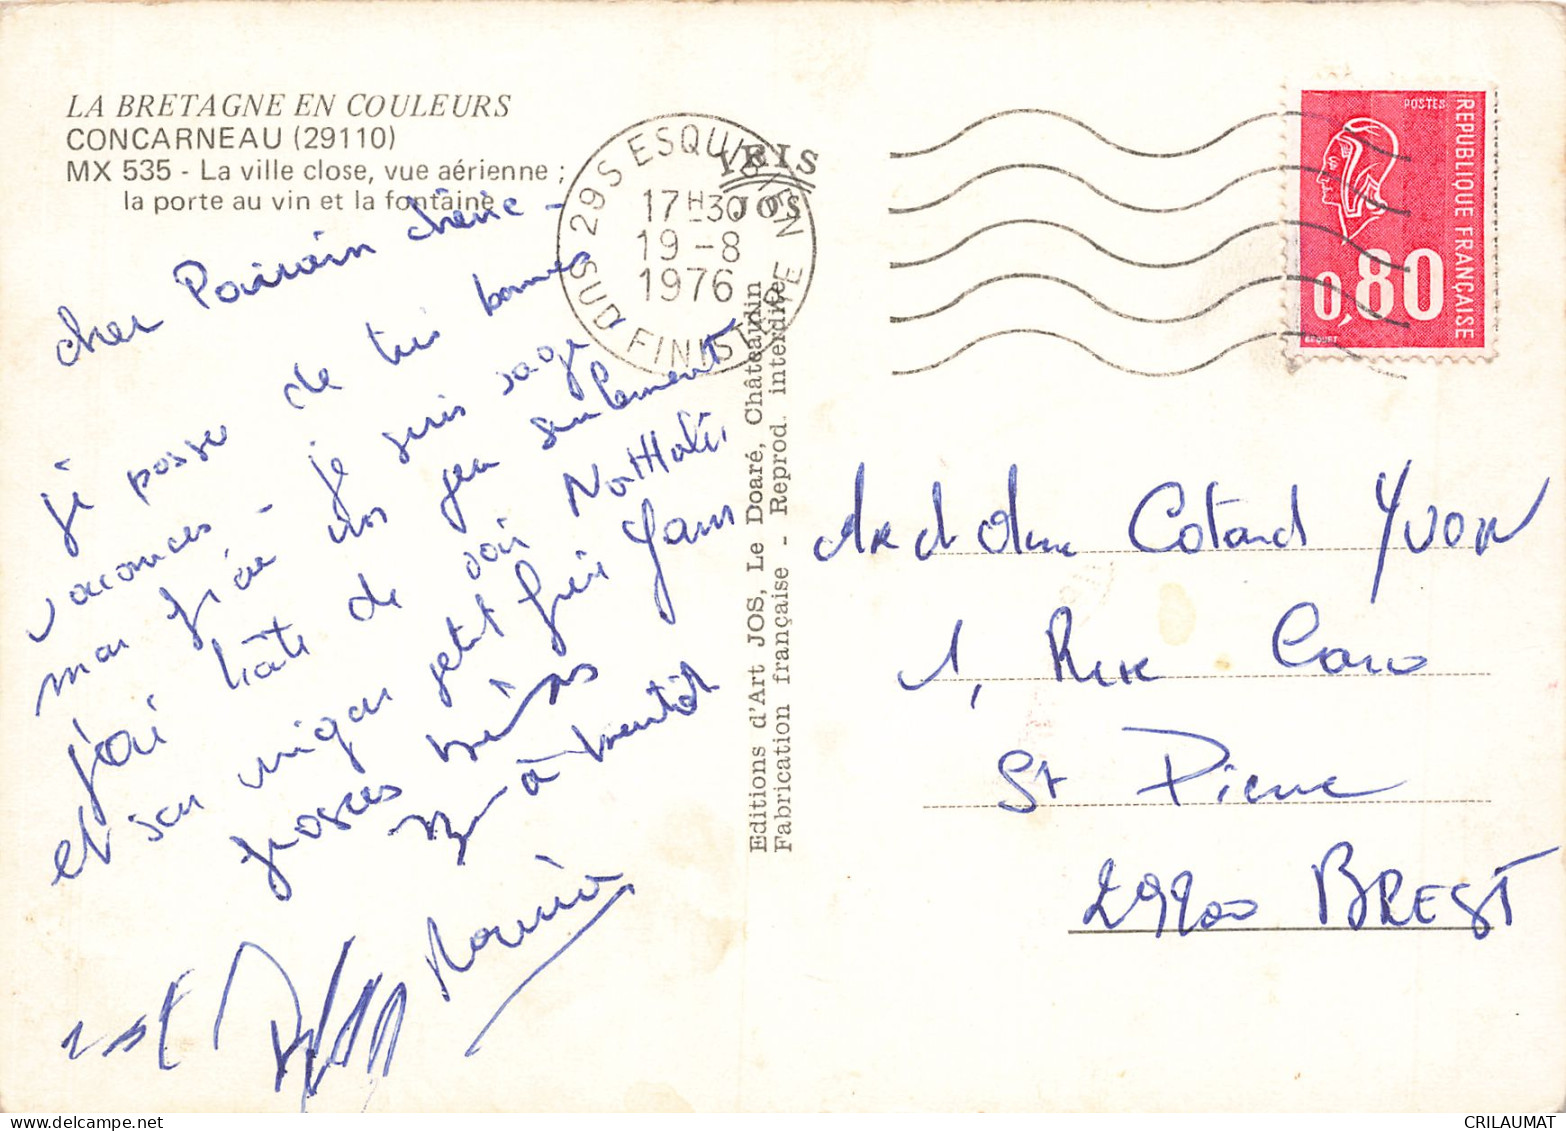 LA BRETAGNE EN COULEURS
CONCARNEAU (29110)
MX 535 - La ville close, vue aérienne ;
la porte au vin et la fontaine
cher Parrain chérie -
je passe de très bonnes
vacances - je suis sage
mon frère un peu seulement
j'ai hâte de voir Nathalie
et son unique petit frère Yann
grosses bises
à bientôt
29S ESQUIBIEN
17H30
19-8
1976
SUD FINISTERE
IRIS
JOS
Editions d'Art JOS, Le Doaré, Châteaulin
Fabrication française - Reprod. interdite
POSTES
REPUBLIQUE FRANÇAISE
0,80
BEQUET
Mr et Mme Cotard Yvon
1, Rue Caro
St Pierre
29200 BREST
CRILAUMAT